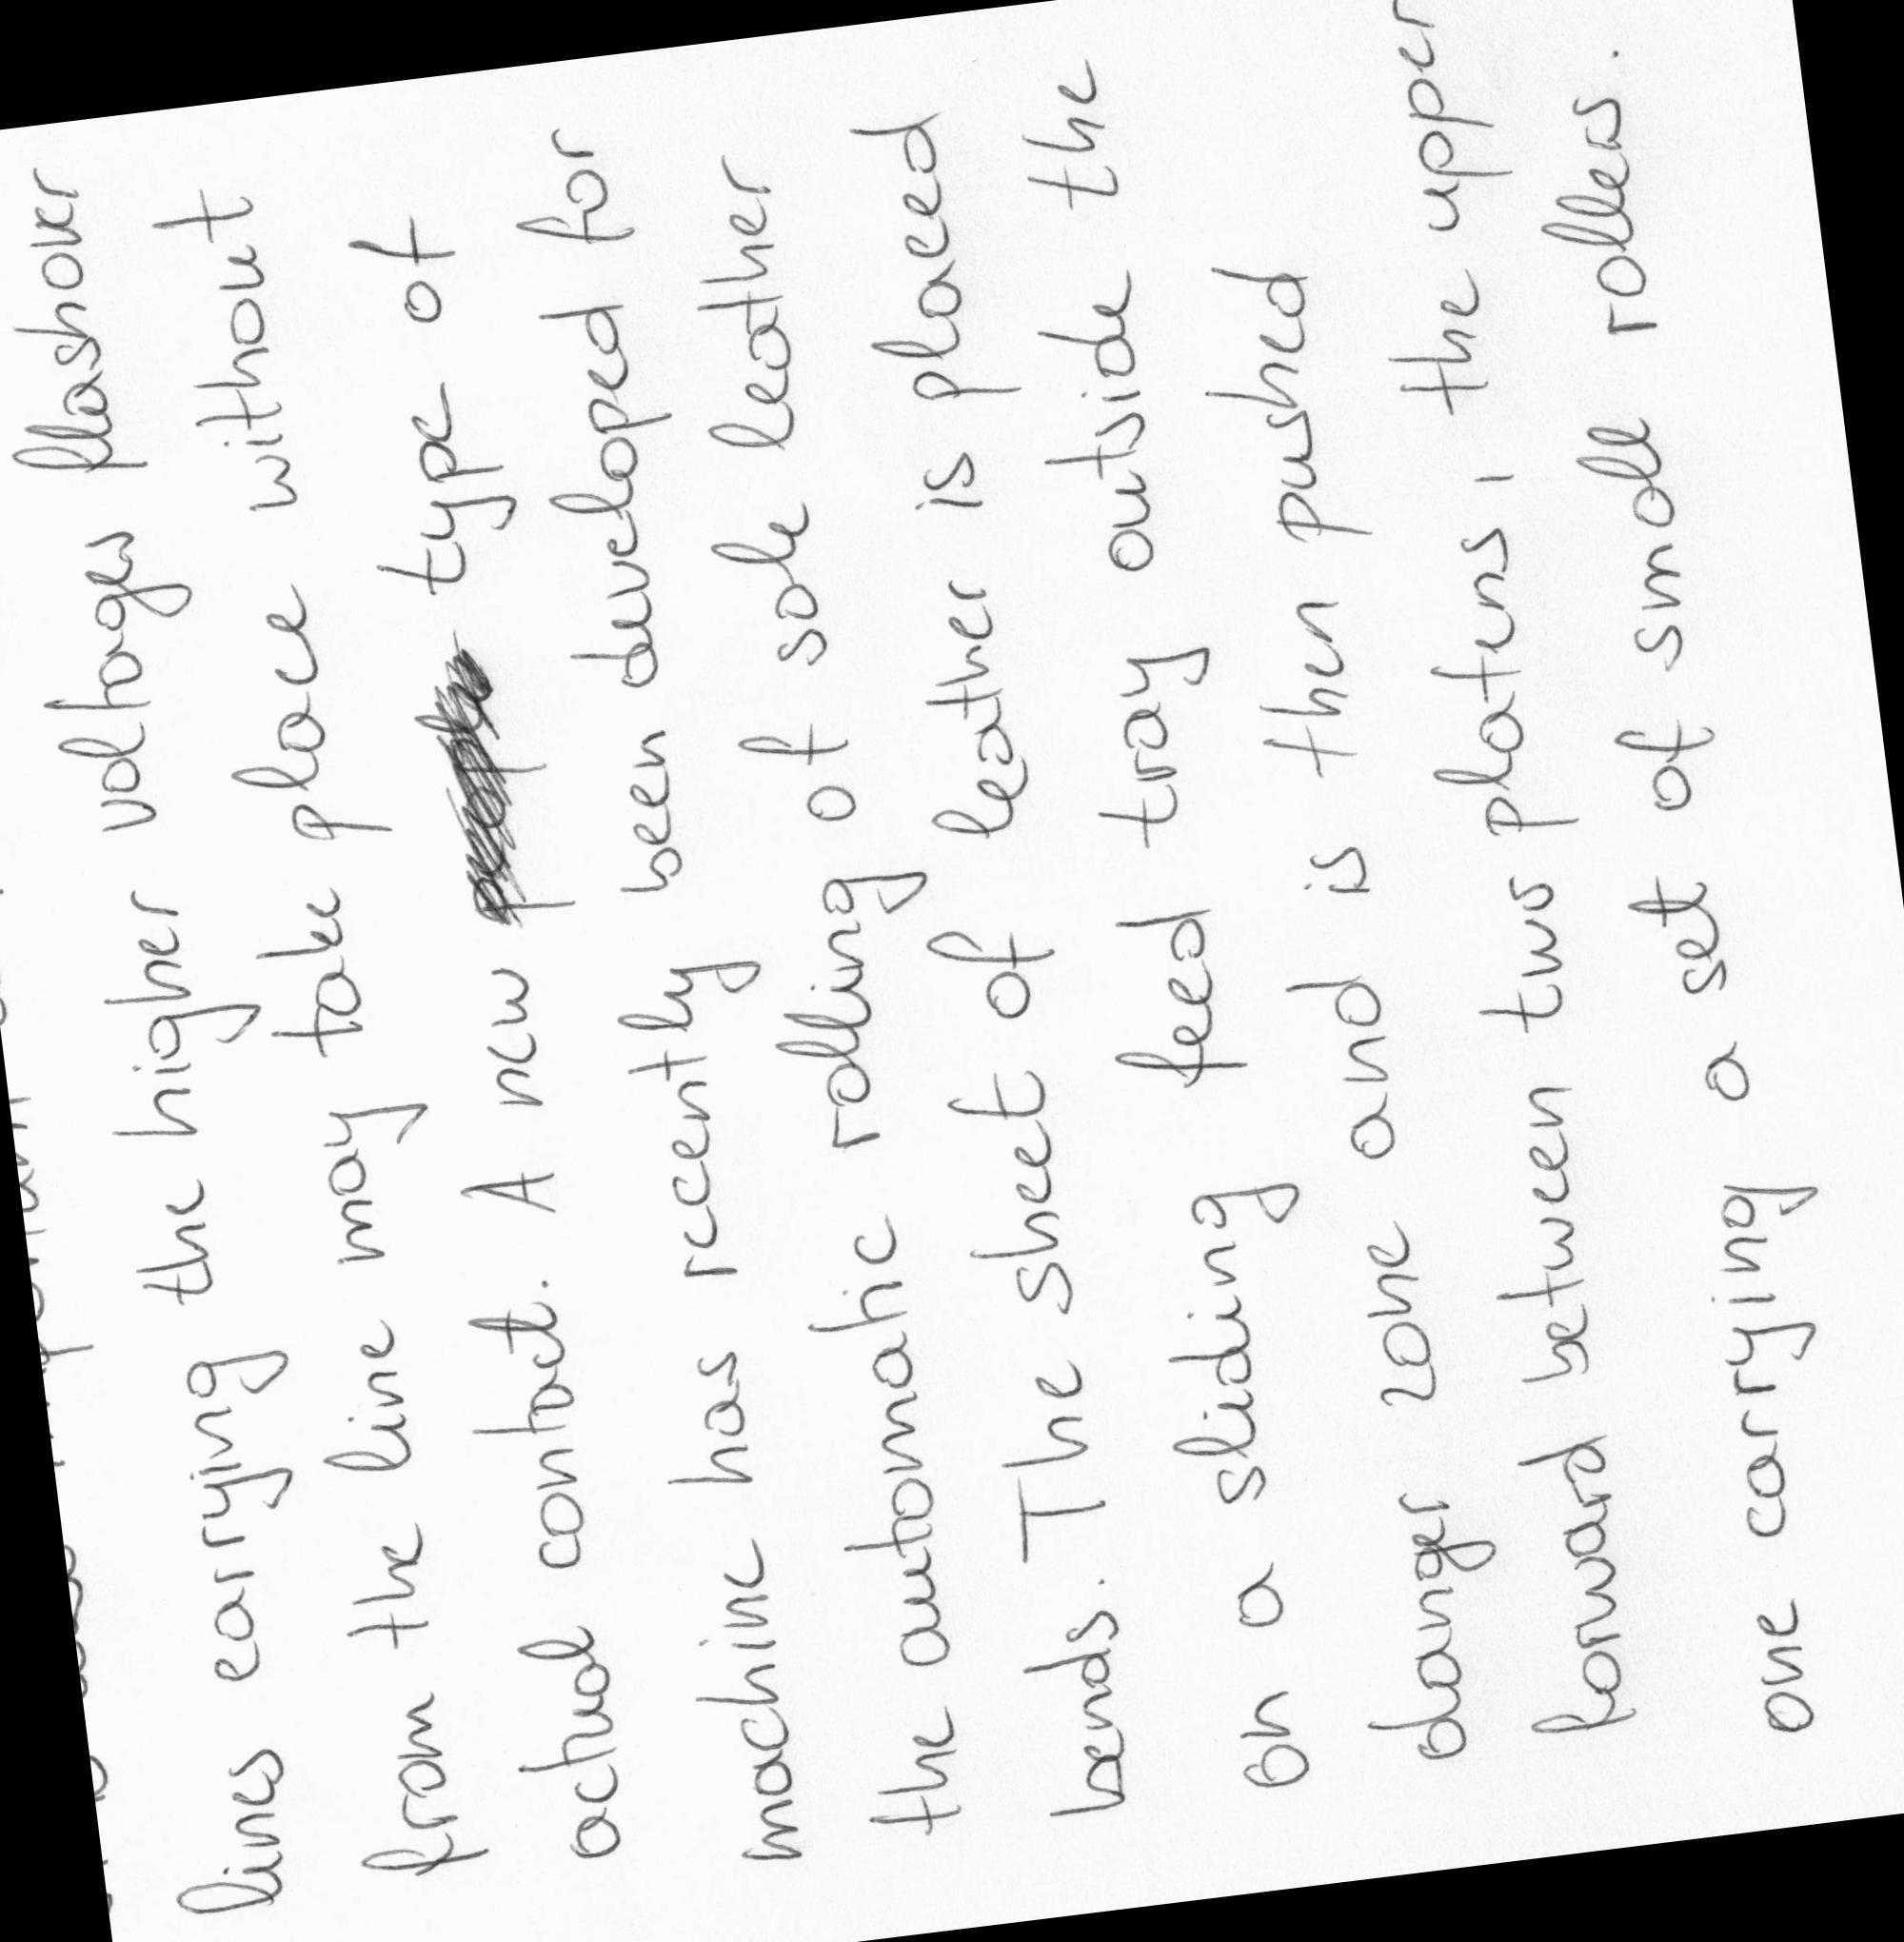 lines carrying the higher voltages flashover
from the line may take place without
actual contact. A new type of
machine has recently been developed for
the automatic rolling of sole leather
bends. The sheet of leather is placed
on a sliding feed tray outside the
danger zone and is then pushed
forward between two platens, the upper
one carrying a set of small rollers.